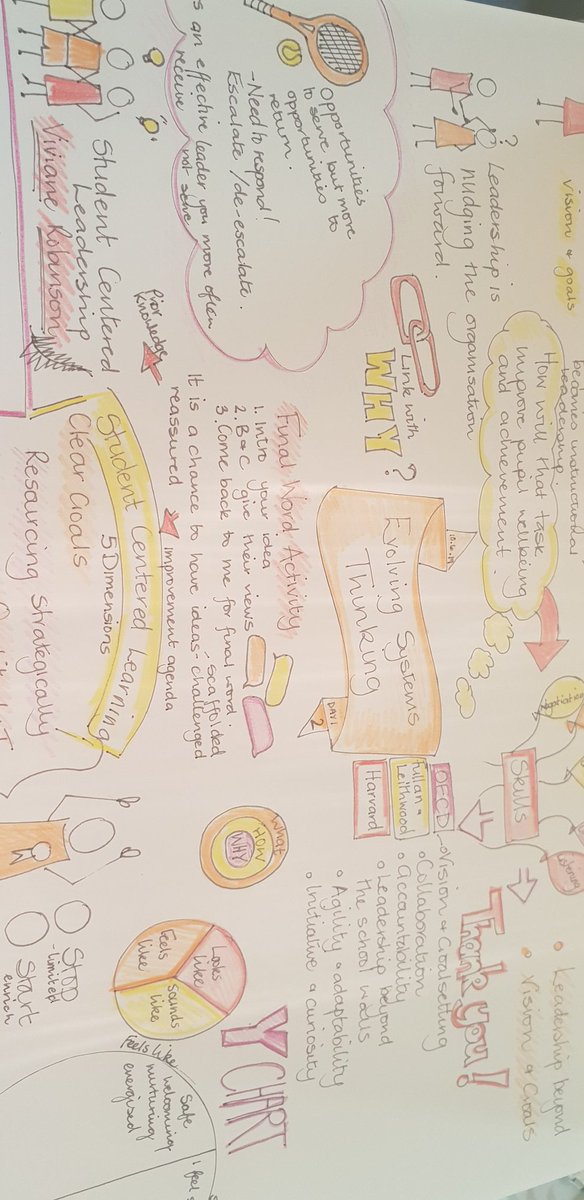 vision & goals
becomes instructional
leadership.
How will that task
improve pupil wellbeing
and achievement?
?
Leadership is
nudging the
organisation
forward.
Link with
WHY?
Opportunities
to serve but more
opportunities to
return.
- Need to respond!
Escalate / de-escalate.
as an effective leader you more often
receive not serve
Student Centered
Leadership
Viviane Robinson
Evolving Systems
Thinking
DAY 1
2
Skills
negotiation
Listening
Thank you!
Leadership beyond
Vision & Goals
OECD
Fullan &
Leithwood
Harvard
- Vision & Goalsetting
Collaboration
Accountability
Leadership beyond
the school walls
Agility & adaptability
Initiative & curiosity
Final Word Activity
1. Intro your idea
2. B & C give their views
3. Come back to me for final word.
It is a chance to have ideas challenged
scaffolded
reassured
Prior
Knowledge
improvement agenda
Student Centered Learning
5 Dimensions
Clear Goals
Resourcing Strategically
What
HOW
WHY
Looks
like
Feels
like
Sounds
like
Y CHART
Feels like
Safe
welcoming
nurturing
energised
I feel
STOP
- limited
Start
enrich